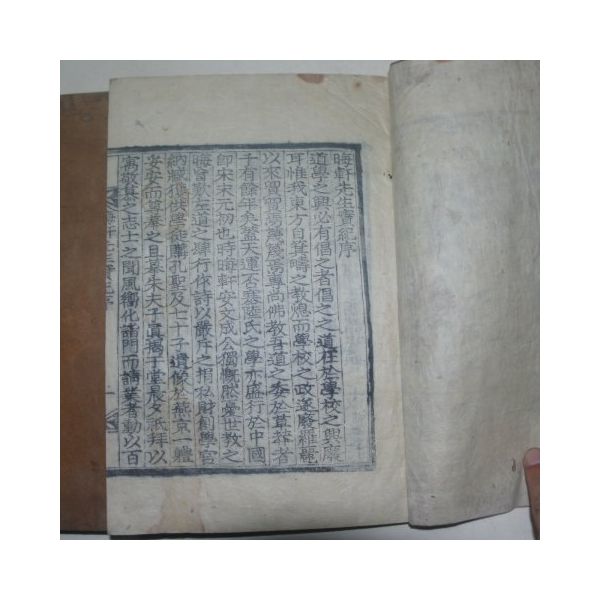 晦軒先生實紀序
道學之興必有倡之者倡之之道在於學校之興廢
耳惟我東方自箕疇之教熄而學校之政遂廢羅麗
以來貿貿焉專尚佛教吾道之委於草莽者
千有餘年矣蓋天運否塞陸氏之學亦盛行於中國
即宋末元初也時晦軒安文成公獨慨然憂世教之
晦曾歎左道之肆行作詩以嚴斥之捐私財創學官
納臧獲供學徒購孔聖及七十子遺像於燕京一軆
妥安而算摹之且摹朱夫子眞揭于堂晨夕祇拜以
寓敬慕之志士之聞風嚮化諸門而請業者動以百
晦軒先生實紀序
一